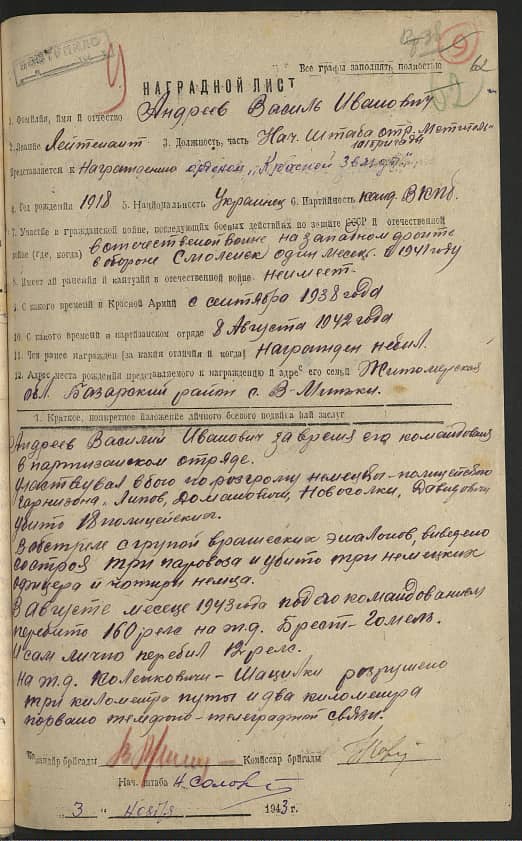 ПОСТУПИЛО
9
62
52
Все графы заполнять полностью
НАГРАДНОЙ ЛИСТ
1. Фамилия, имя и отчество Андреев Василь Иванович
2. Звание Лейтенант 3. Должность, часть Нач. штаба отр. „Мститель"
101 бригады
Представляется к Награждению орденом „Красной Звезды"
4. Год рождения 1918 5. Национальность Украинец 6. Партийность канд. ВКПб.
7. Участие в гражданской войне, последующих боевых действиях по защите СССР и отечественной
войне (где, когда) в отечественой войне на западном фронте
в обороне Смоленск один месец в 1941 году
8. Имеет ли ранения и контузии в отечественной войне неимеет.
9. С какого времени в Красной Армии с сентября 1938 года
10. С какого времени в партизанском отряде 8 Августа 1942 года
11. Чем ранее награжден (за какия отличия и когда) Награжден небыл.
12. Адрес места рождения представляемого к награждению и адрес его семьи Житомерская
обл. Базарский район с. В-Миньки.
1. Краткое, конкретное изложение личного боевого подвига или заслуг
Андреев Василий Иванович за время его командования
в партизанском отряде.
Участвувал в бою по розгрому немецко-полицейского
гарнизона, Липов, Домановичи, Новоголки, Давидовичи
убито 18 полицейских.
В обстреле с групой вражеских эшалонов, выведено
состроя три паровоза и убито три немецких
офицера и чотири немца.
В Августе месеце 1943 года под его командованием
перебито 160 релс на ж.д. Брест-Гомель.
И сам лично перебил 12 релс.
На ж.д. Коленковичи-Шацилки розрушено
три километра путы и два километра
порвано телефоно-телеграфной связи.
Командир бригады Комиссар бригады
Нач. штаба
„3" ноября 1943 г.